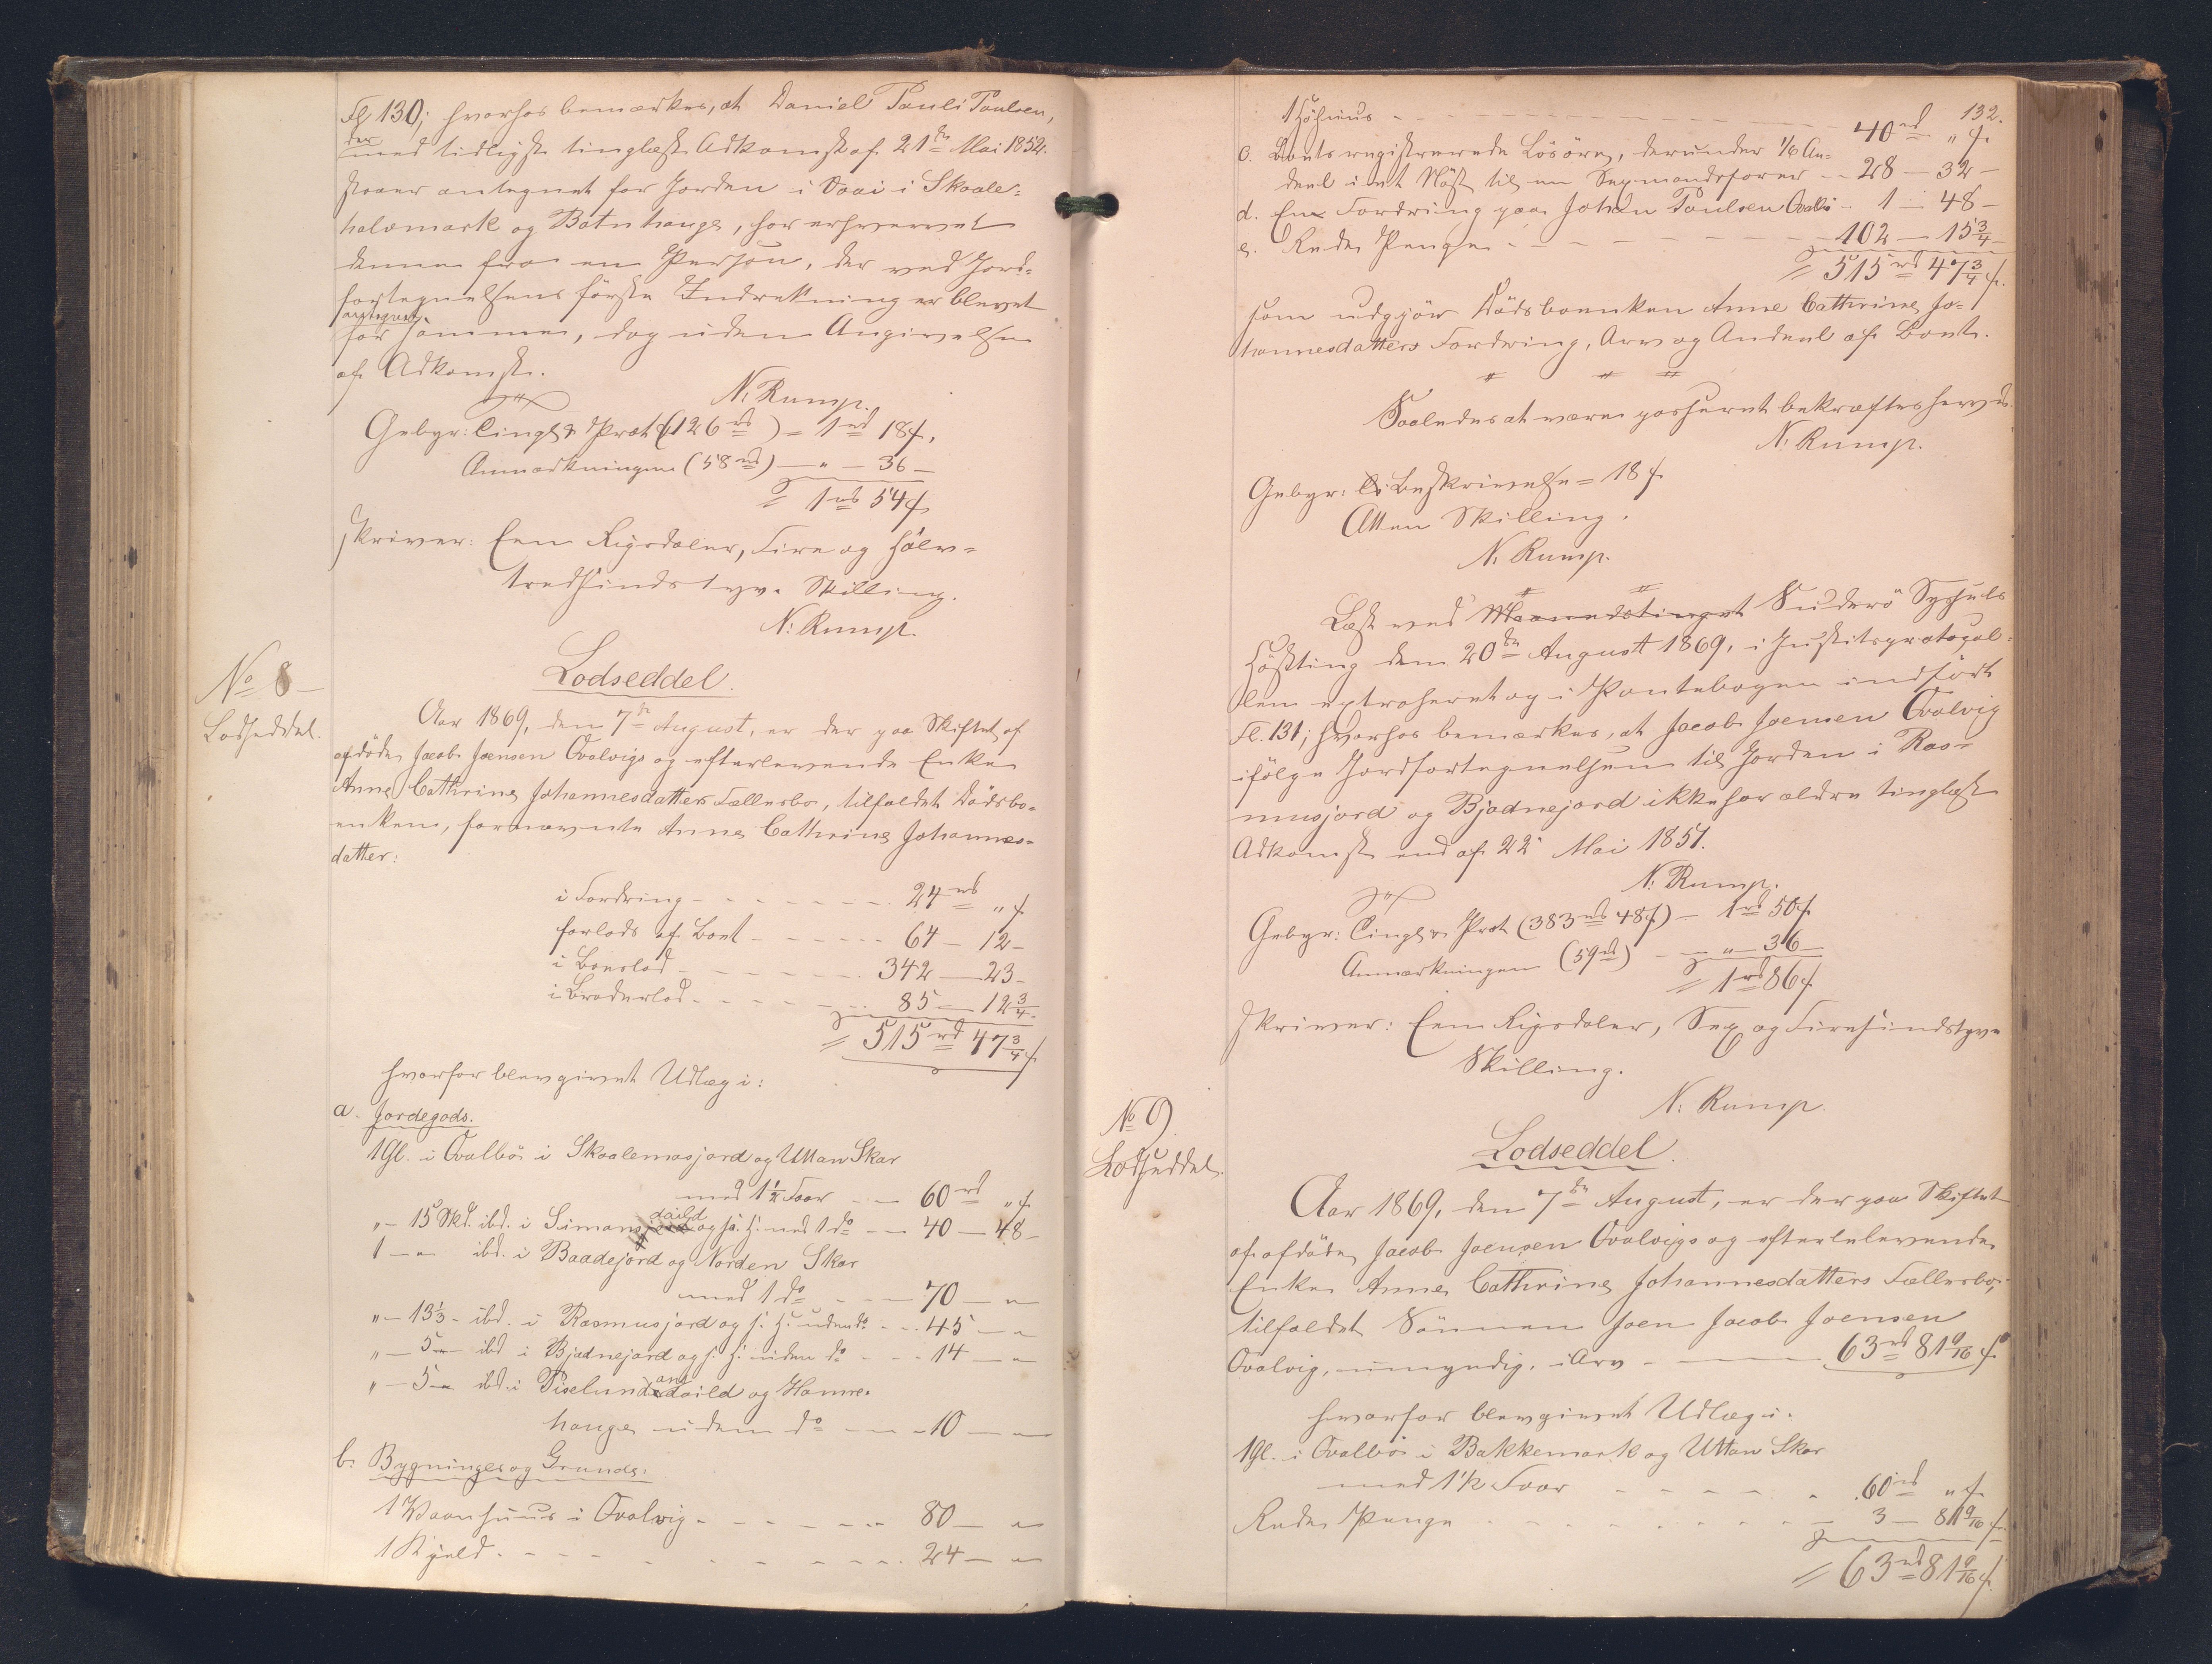 Fl 130; hvorhos bemærkes, at Daniel Pauli Poulsen,
der
med tidligste tinglæste Adkomst af 21de Mai 1852.
staaer antegnet for Jorden i Vaai i Skaale-
halsmark og Botnhauge, har erhvervet
denne fra en Person, der ved Jord-
fortegnelsens første Indretning er blevet
antegnet
for samme, dog uden Angivelse
af Adkomst.
N. Rump.
Gebyr: Tingl. & Prot (126 rd) = 1 rd 18 f.
Anmærkningen (58 rd) — " — 36 —
= 1 rd 54 f
skriver: Een Rigsdaler, Fire og halv-
tredsindstyve Skilling.
N: Rump.
No 8 —
Lodseddel.
Lodseddel.
Aar 1869, den 7de August, er der paa Skiftet af
afdøde Jacob Joensen Qvalvigs og efterlevende Enke
Anne Cathrine Johannesdatters Fællesbo, tilfaldet Dødsbo-
enken, fornævnte Anne Cathrine Johannes-
datter:
i Fordring - - - - - - - 24 rd " f
forlods af Boet - - - - - 64 — 12 -
i Boeslod - - - - - - 342 — 23 -
i Broderlod - - - - - - 85 — 12 3/4 -
= 515 rd 47 3/4 f
hvorfor blev givet Udlæg i:
a. Jordegods.
1 Gl. i Qvalbø i Skaalemosjord og Uttan Skar
med 1 1/2 Foar - - 60 rd " f
" - 15 Skd. ibd. i Simonsdaild og s. H. med 1 do - - 40 — 48 -
1 — " ibd. i Baadejord og Norden Skar
med 1 do - - - 70 — "
" - 13 1/3 - ibd. i Rasmusjord og s. H. uden do - - 45 — "
" — 5 — ibd i Bjadnejord og s. H. uden do - - - 14 — "
" — 5 — ibd. i Piselundansdaild og Hamre-
hauge uden do — — - 10 — "
b. Bygninger og Grunde:
1 Vaanhuus i Qvalvig - - - - - - 80 — "
1 Kjeld - - - - - - - - - 24 — "
132.
1 Høhuus - - - - - - - - - 40 rd " f.
c. Boets registrerede Løsøre, derunder 1/6 An-
deel i et Nøst til en Sexmandsfarer - - 28 — 32 —
d. En Fordring paa Johan Poulsen Qvalbø - 1 — 48 —
e. Rede Penge - - - - - 102 — 15 3/4 —
= 515 rd 47 3/4 f.
som udgjør Dødsboenken Anne Cathrine Jo-
hannesdatters Fordring, Arv og Andeel af Boet.
Saaledes at være passeret bekræftes herved.
N. Rump.
Gebyr: Beskrivelse = 18 f
Atten Skilling.
N. Rump.
Læst ved Maanedstinget Suderø Syssels
Høstting den 20de August 1869, i Justitsprotocol-
len extraheret og i Pantebogen indført
Fl. 131; hvorhos bemærkes, at Jacob Joensen Qvalvig
ifølge Jordfortegnelsen til Jorden i Ras-
musjord og Bjadnejord ikke har ældre tinglæst
Adkomst end af 22 Mai 1851.
N. Rump.
Gebyr: Tingl. & Prot (383 rd 48 f) — 1 rd 50 f.
Anmærkningen (59 rd) — " — 36 —
= 1 rd 86 f
skriver: Een Rigsdaler, Sex og Firesindstyve
Skilling.
N: Rump.
No 9.
Lodseddel.
Lodseddel.
Aar 1869, den 7de August, er der paa Skiftet
af afdøde Jacob Joensen Qvalvigs og efterlevende
Enke Anne Cathrine Johannesdatters Fællesbo,
tilfaldet Sønnen Joen Jacob Joensen
Qvalvig, umyndig, i Arv - — 63 rd 81 9/16 f
hvorfor blev givet Udlæg i:
1 Gl. i Qvalbø i Bakkemark og Uttan Skar
med 1 1/2 Foar - - - - - 60 rd " f.
Rede Penge - - - - - - - 3 — 81 9/16 f.
= 63 rd 81 9/16 f.